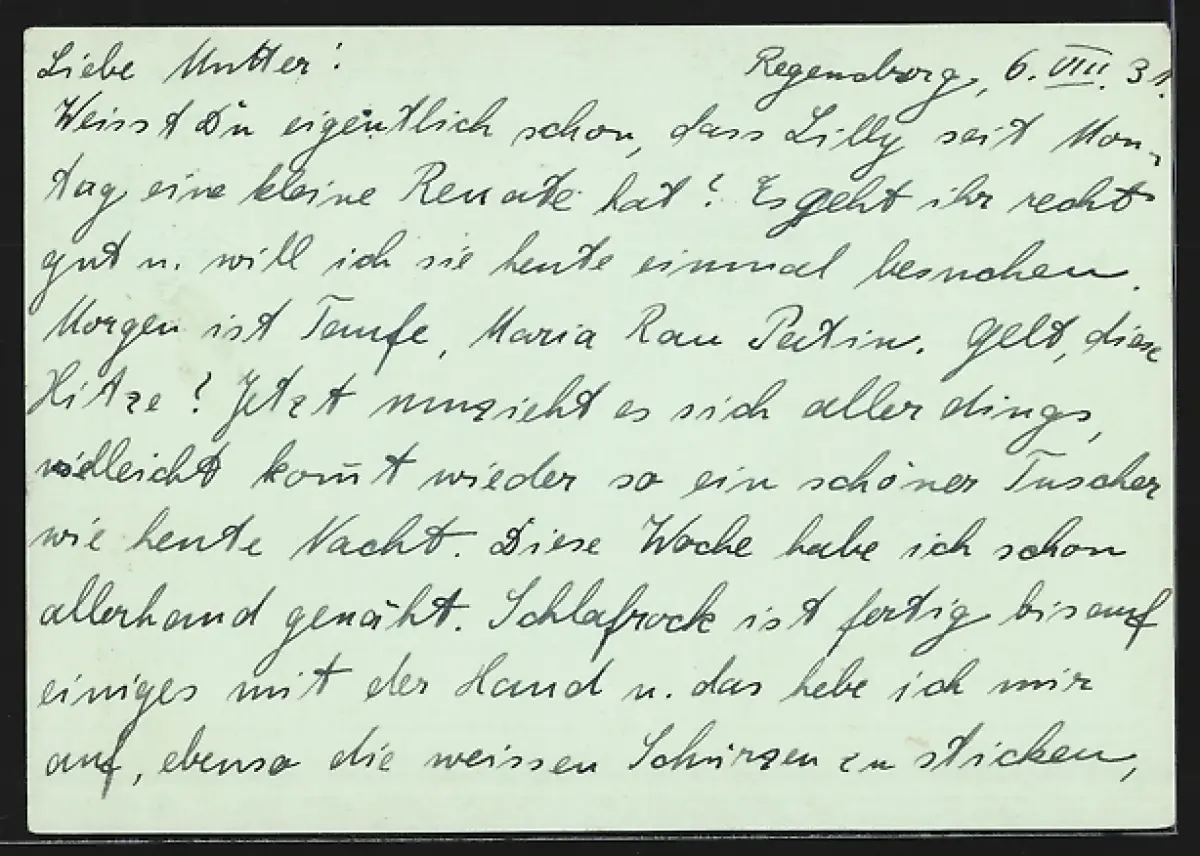 Liebe Mutter! Regensburg, 6. VIII. 31.
Weisst Du eigentlich schon, dass Lilly seit Mon-
tag eine kleine Renate hat? Es geht ihr recht
gut u. will ich sie heute einmal besuchen.
Morgen ist Taufe, Maria Rau Patin. Gelt, diese
Hitze? Jetzt umzieht es sich allerdings,
vielleicht kom̄t wieder so ein schöner Tuscher
wie heute Nacht. Diese Woche habe ich schon
allerhand genäht. Schlafrock ist fertig bis auf
einiges mit der Hand u. das hebe ich mir
auf, ebenso die weissen Schürzen zu sticken,